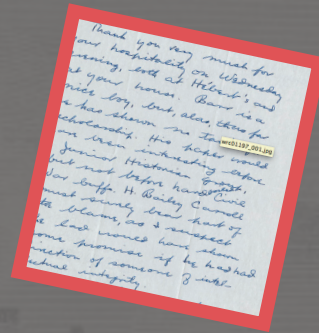 Thank you very much for
your hospitality on Wednesday
evening, both at Hilbert's, and
at your house. Barr is a
nice boy, but, alas, thus far
has shown no
scholarship. His paper would
been interesting before
Junior Historian
but not before hard Civil
War buffs. H. Bailey Carroll
must surely bear part of
the blame, as I suspect
he had would have shown
some promise if he had had
direction of someone of intel-
lectual integrity.
wcs01192_001.jpg